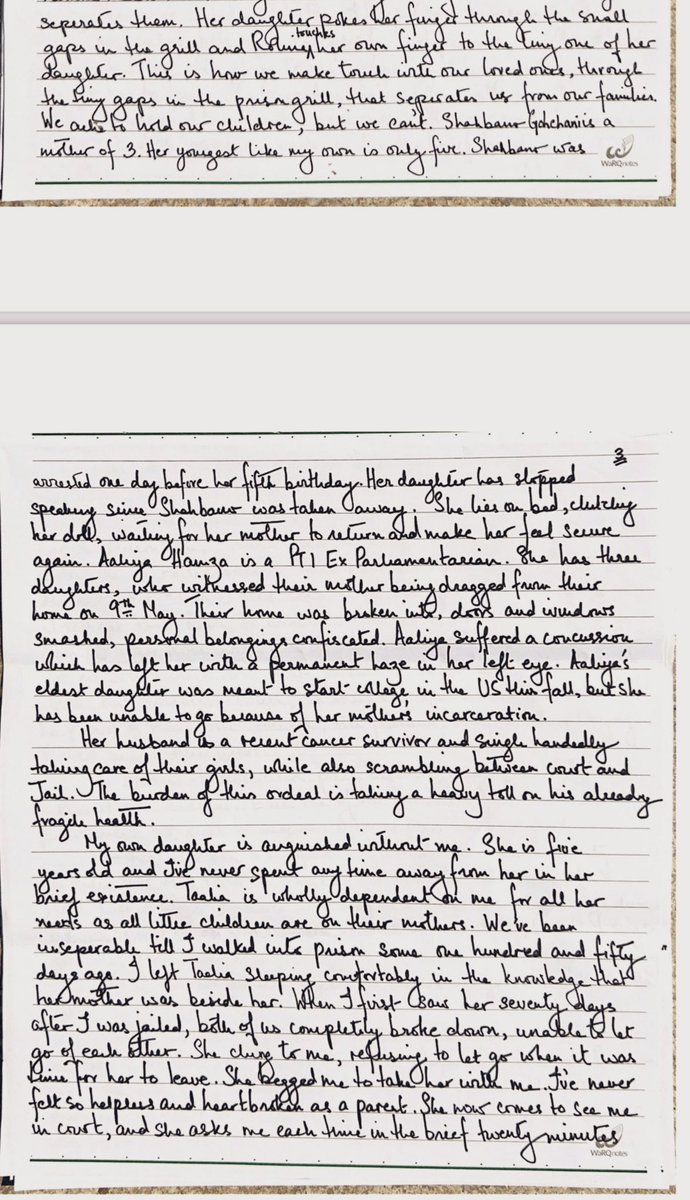 seperates them. Her daughter pokes her finger through the small
gaps in the grill and touches her own finger to the tiny one of her
daughter. This is how we make touch with our loved ones, through
the tiny gaps in the prison grill, that seperates us from our families.
We ache to hold our children, but we can't. Shahbano Gohchani is a
mother of 3. Her youngest like my own is only five. Shahbano was
WaRQnotes
3
arrested one day before her fifth birthday. Her daughter has stopped
speaking since Shahbano was taken away. She lies on bed, clutching
her doll, waiting for her mother to return and make her feel secure
again. Aaliya Hamza is a PTI Ex Parliamentarian. She has three
daughters, who witnessed their mother being dragged from their
home on 9th May. Their home was broken into, doors and windows
smashed, personal belongings confiscated. Aaliya suffered a concussion
which has left her with a permanent haze in her left eye. Aaliya's
eldest daughter was meant to start college in the US this fall, but she
has been unable to go because of her mother's incarceration.
Her husband is a recent cancer survivor and single handedly
taking care of their girls, while also scrambling between court and
Jail. The burden of this ordeal is taking a heavy toll on his already
fragile health.
My own daughter is anguished without me. She is five
years old and I've never spent any time away from her in her
brief existence. Taalia is wholly dependent on me for all her
needs as all little children are on their mothers. We've been
inseperable till I walked into prison some one hundred and fifty
days ago. I left Taalia sleeping comfortably in the knowledge that
her mother was beside her. When I first saw her seventy days
after I was jailed, both of us completely broke down, unable to let
go of each other. She clung to me, refusing to let go when it was
time for her to leave. She begged me to take her with me. I've never
felt so helpless and heartbroken as a parent. She now comes to see me
in court, and she asks me each time in the brief twenty minutes
WaRQnotes